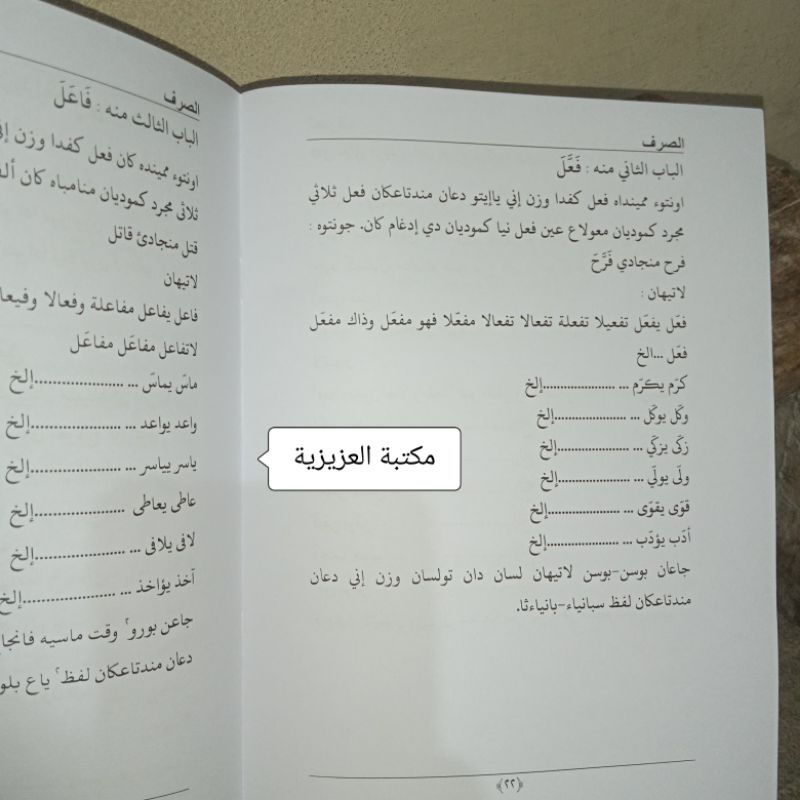 الصرف
الباب الثاني منه : فَعَّلَ
اونتوء ممينداه فعل كفدا وزن إني ياإيتو دعان مندتاعكان فعل ثلاثي
مجرد كموديان معولاع عين فعل نيا كموديان دي إدغام كان. جونتوه :
فرح منجادي فَرَّحَ
لاتيهان :
فعّل يفعّل تفعيلا تفعلة تفعالا تفعالا مفعّلا فهو مفعّل وذاك مفعّل
فعّل ...الخ
كرّم يكرّم ... ......................إلخ
وكّل يوكّل ... ......................إلخ
زكّى يزكّي ... ......................إلخ
ولّى يولّي ... ......................إلخ
قوّى يقوّى ... ......................إلخ
أدّب يؤدّب ... ......................إلخ
جاعان بوسن-بوسن لاتيهان لسان دان تولسان وزن إني دعان
مندتاعكان لفظ سبانياء-بانياءثا.
﴿٢٢﴾
مكتبة العزيزية
الصرف
الباب الثالث منه : فَاعَلَ
اونتوء ممينده كان فعل كفدا وزن
ثلاثي مجرد كموديان منامباه كان
قتل منجادئ قاتل
لاتيهان
فاعل يفاعل مفاعلة وفعالا
لاتفاعل مفاعَل مفاعَل
ماسّ يماسّ ... ......................إلخ
واعد يواعد ... ......................إلخ
ياسر يياسر ... ......................إلخ
عاطى يعاطى ......................إلخ
لافى يلافى ... ......................إلخ
آخذ يؤاخذ ... ......................إلخ
جاعن بورو٢ وقت ماسيه
دعان مندتاعكان لفظ٢ ياع